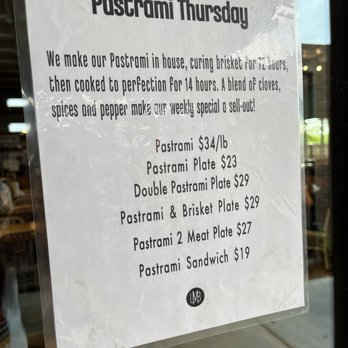 Pastrami Thursday
We make our Pastrami in house, curing brisket for 72 hours,
then cooked to perfection for 14 hours. A blend of cloves,
spices and pepper make our weekly special a sell-out!
Pastrami $34/lb
Pastrami Plate $23
Double Pastrami Plate $29
Pastrami & Brisket Plate $29
Pastrami 2 Meat Plate $27
Pastrami Sandwich $19